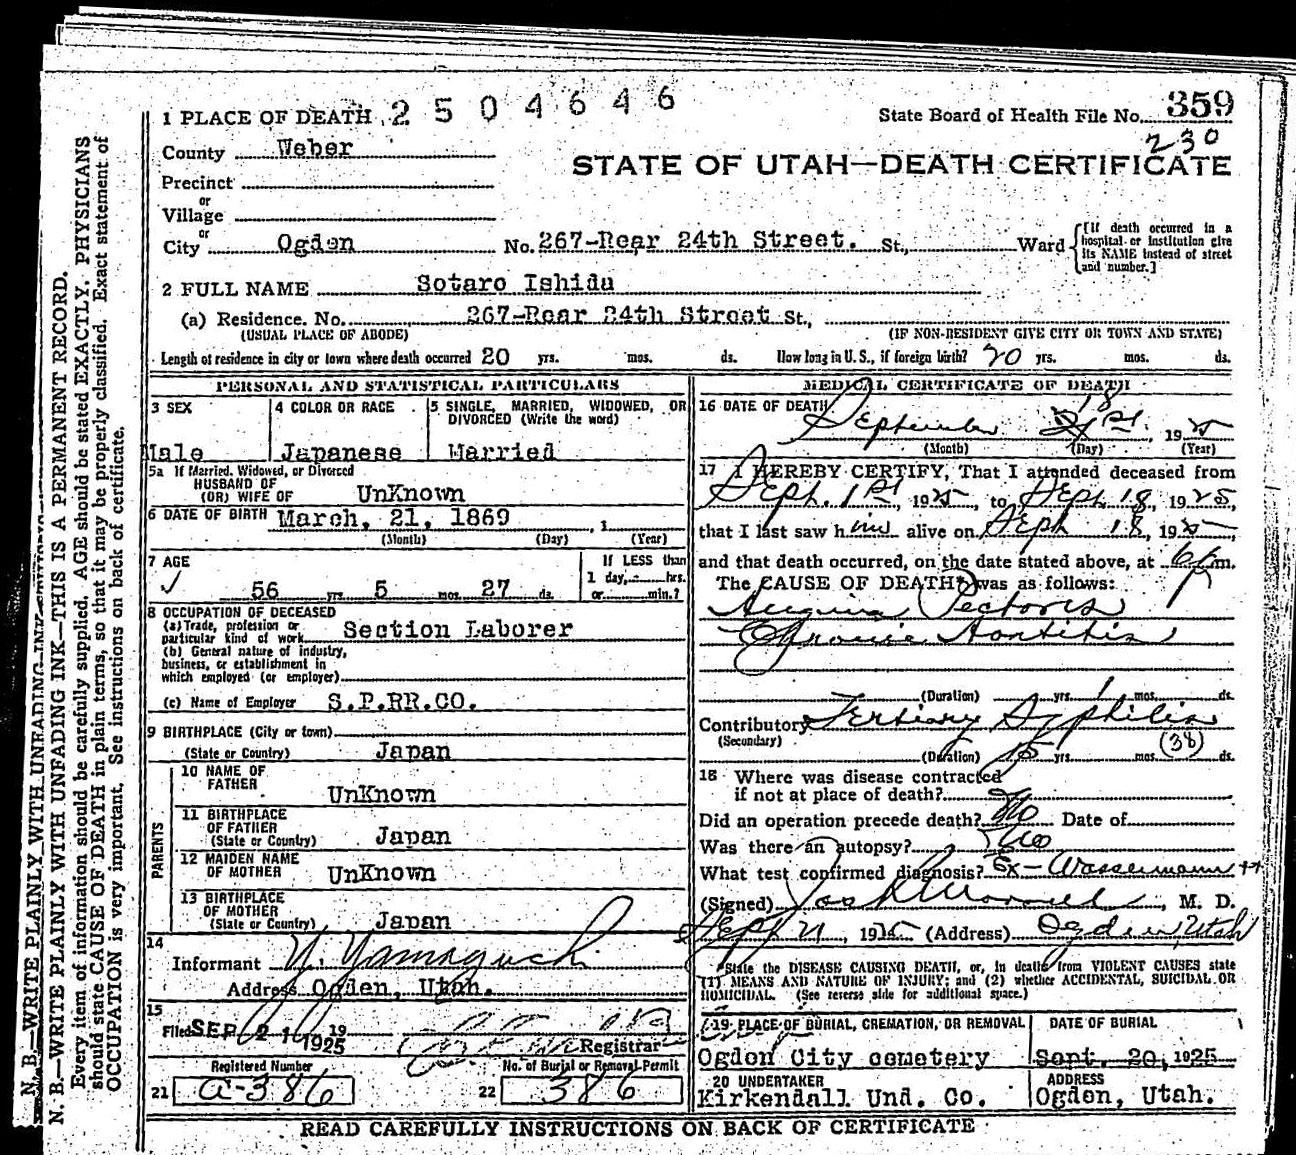 1 PLACE OF DEATH 2 5 0 4 6 4 6
State Board of Health File No. 359
230
County Weber
STATE OF UTAH—DEATH CERTIFICATE
Precinct
or
Village
or
City Ogden No. 267-Rear 24th Street. St., Ward
[If death occurred in a hospital or institution give its NAME instead of street and number.]
2 FULL NAME Sotaro Ishida
(a) Residence. No. 267-Rear 24th Street St.,
(USUAL PLACE OF ABODE) (IF NON-RESIDENT GIVE CITY OR TOWN AND STATE)
Length of residence in city or town where death occurred 20 yrs. mos. ds. How long in U. S., if foreign birth? 20 yrs. mos. ds.
PERSONAL AND STATISTICAL PARTICULARS
3 SEX
Male
4 COLOR OR RACE
Japanese
5 SINGLE, MARRIED, WIDOWED, OR DIVORCED (Write the word)
Married
5a If Married, Widowed, or Divorced
HUSBAND OF
(OR) WIFE OF UnKnown
6 DATE OF BIRTH March, 21, 1869 , 1
(Month) (Day) (Year)
7 AGE
If LESS than
1 day, hrs.
56 yrs. 5 mos. 27 ds. or min.?
8 OCCUPATION OF DECEASED
(a) Trade, profession or
particular kind of work Section Laborer
(b) General nature of industry,
business, or establishment in
which employed (or employer)
(c) Name of Employer S.P.RR.CO.
9 BIRTHPLACE (City or town)
(State or Country) Japan
PARENTS
10 NAME OF
FATHER UnKnown
11 BIRTHPLACE
OF FATHER
(State or Country) Japan
12 MAIDEN NAME
OF MOTHER UnKnown
13 BIRTHPLACE
OF MOTHER
(State or Country) Japan
14
Informant Y. Yamaguchi
Address Ogden, Utah.
15
Filed SEP 21 1925 19
Registrar
Registered Number
21 a-386
No. of Burial or Removal Permit
22 386
MEDICAL CERTIFICATE OF DEATH
16 DATE OF DEATH
18
September 21st, 1925
(Month) (Day) (Year)
17 I HEREBY CERTIFY, That I attended deceased from
Sept. 1st, 1925, to Sept. 18, 1925,
that I last saw him alive on Sept 18, 1925,
and that death occurred, on the date stated above, at 6 p m.
The CAUSE OF DEATH* was as follows:
Angina Pectoris
Chronic Aortitis
(Duration) yrs. 1 mos. ds.
Contributory Tertiary Syphilis
(Secondary)
(38)
(Duration) 15 yrs. mos. ds.
18 Where was disease contracted
if not at place of death?
Did an operation precede death? No Date of
Was there an autopsy? No
What test confirmed diagnosis? Ex- Wassermann ++
(Signed) , M. D.
Sept 21, 1925 (Address) Ogden, Utah
*State the DISEASE CAUSING DEATH, or, in deaths from VIOLENT CAUSES state
(1) MEANS AND NATURE OF INJURY; and (2) whether ACCIDENTAL, SUICIDAL OR
HOMICIDAL. (See reverse side for additional space.)
19 PLACE OF BURIAL, CREMATION, OR REMOVAL
Ogdon City cemetery
DATE OF BURIAL
Sept. 20, 1925
20 UNDERTAKER
Kirkendall Und. Co.
ADDRESS
Ogden, Utah.
READ CAREFULLY INSTRUCTIONS ON BACK OF CERTIFICATE
N. B.—WRITE PLAINLY WITH UNFADING INK
N. B.—WRITE PLAINLY WITH UNFADING INK—THIS IS A PERMANENT RECORD.
Every item of information should be carefully supplied. AGE should be stated EXACTLY. PHYSICIANS
should state CAUSE OF DEATH in plain terms, so that it may be properly classified. Exact statement of
OCCUPATION is very important. See instructions on back of certificate.